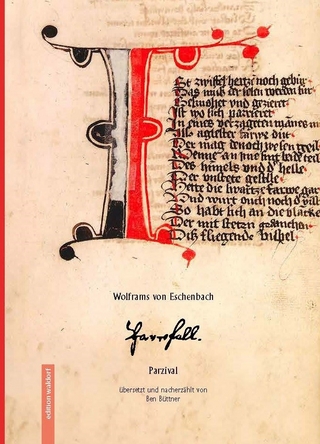 zwifel hertze noch gebur
Das muß der selen werden sur
und gezieret
Ist wo sich parrieret
In eines verzageten
Als agelster farwe dut
Der mag dennoch wesen geil
Wenne an ime sint beide teil
Des himels und d' helle
Der unstete geselle
Hette die swartze farwe gar
Und wurt ouch noch d'
So habt sich an die blancke
Der mit steten
Dis fliegende bispel
Wolframs von Eschenbach
Parzival
übersetzt und nacherzählt von
Ben Büttner
edition waldorf